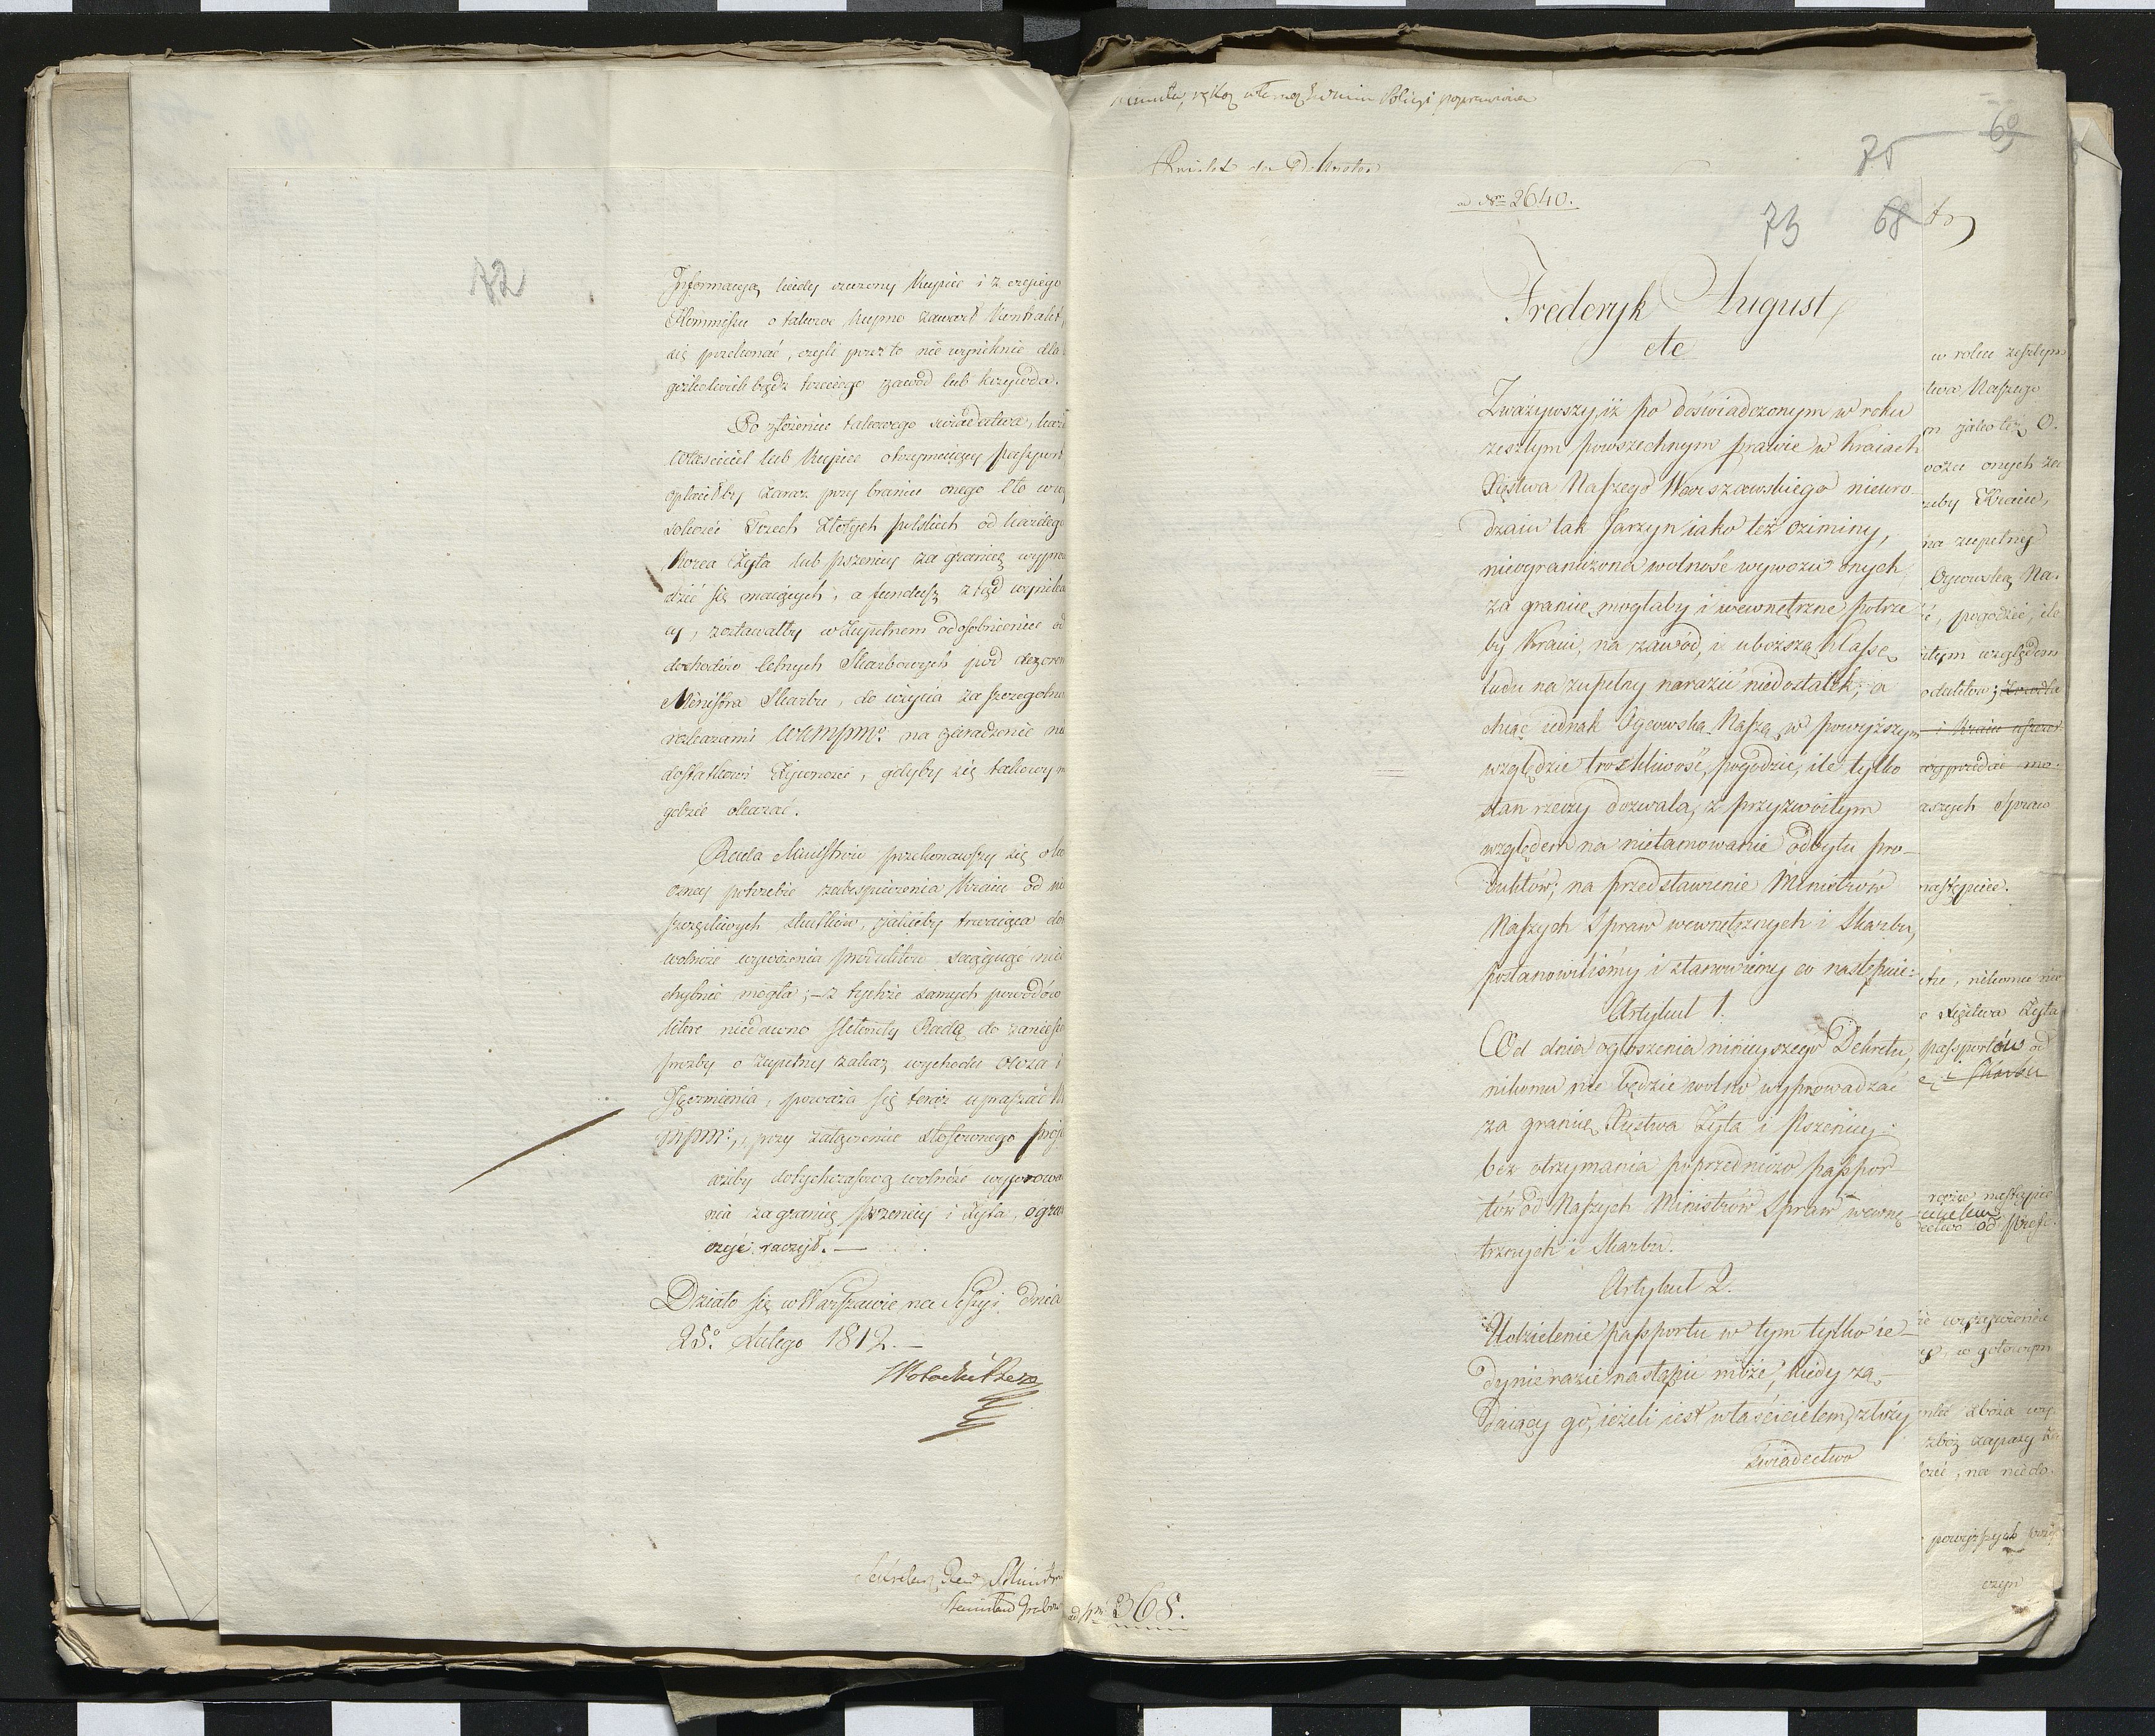 72
Informacyą kiedy rzeczony Kupiec i z czyiego
Kommissu o takowe kupno zawarł Kontrakt,
się przekonać, czyli przez to nie wyniknie dla
gożkolwiek bądz trzeciego zawód lub krzywda.
Po złożeniu takowego świadectwa, każd
Właściciel lub Kupiec otrzymuiący paszport
opłaciłby zaraz przy braniu onego Kto w wy
sokości Trzech Złotych polskich od każdego
Korca Żyta lub pszenicy za granicę wypro
dzić się maiących, a fundusz ztąd wynika
cy, zostawałby w zupełnem odosobnieniu od
dochodów celnych Skarbowych pod dozorem
Ministra Skarbu, do użycia za szczególne
rozkazami WKMPMo. na zaradzenie nie
dostatkowi Żywności, gdyby się takowy
gdzie okazał.
Rada Ministrów przekonawszy się o
czney potrzebie zabespieczenia Kraiu od nie
szczęśliwych skutków, jakieby trwaiąca do
wolność wywożenia produktów sciągnąć nie
chybnie mogła; – z tychże samych powodów
które niedawno skłoniły Radę do zaniesie
prozby o zupełny zakaz wychodu Owsa i
Jęczmienia, poważa się teraz upraszać W
MPMo., przy załączeniu stosownego proje
ażeby dotychczasową wolność wyprowa
nia za granicę pszenicy i Żyta, ogra
czyć raczył. —
Działo się w Warszawie na Sessyi dnia
25o. Lutego 1812. —
Sekretarz Rady Ministrów
Stanisław Grabow
poprawiona
Projekt do Dekretu
69
75
ad Nr 2640.
73
68
Frederyk August
etc
Zważywszy, iż po doświadczonym w roku
zeszłym powszechnym prawie w Kraiach
Xięstwa Naszego Warszawskiego nieuro-
dzaiu tak Jarzyn iako też oziminy,
nieograniczona wolność wywozu onych
za granicę mogłaby i wewnętrzne potrze
by Kraiu, na zawód, i uboższą Klassę
ludu na zupełny narazić niedostatek; a
chcąc iednak Oycowską Naszą w powyższym
względzie troskliwość, pogodzić, ile tylko
stan rzeczy dozwala, z przyzwoitym
względem na nietamowanie odbytu pro-
duktów; na przedstawienie Ministrów
Naszych Spraw wewnętrznych i Skarbu,
postanowiliśmy i stanowiemy co następuie:
Artykuł 1.
Od dnia ogłoszenia ninieyszego Dekretu,
nikomu nie będzie wolno wyprowadzać
za granicę Xięstwa Żyta i Pszenicy
bez otrzymania poprzedniczo paszpor
tów od Naszych Ministrów Spraw wewnę
trznych i Skarbu.
Artykuł 2.
Udzielenie paszportu w tym tylko ie-
dynie razie nastąpić może, kiedy żą-
daiący go, ieżeli iest właścicielem, złoży
świadectwo
ad Nr 368.
w roku zeszłym
twa Naszego
jako też O.
wozu onych za
zeby Kraiu,
na zupełny
Oycowską Na.
pogodzić, ile
względem
oduktów; źrodła
i Kraiu
wyprzedać mo
aszych Spraw
następuie.
nikomu nie
Xięstwa Żyta
paszportów od
i Skarbu
razie nastąpić
ectwo od Prefe.
w gotowym
zboża wy
zboż zapasy
na niedo.
powyższych
czyn